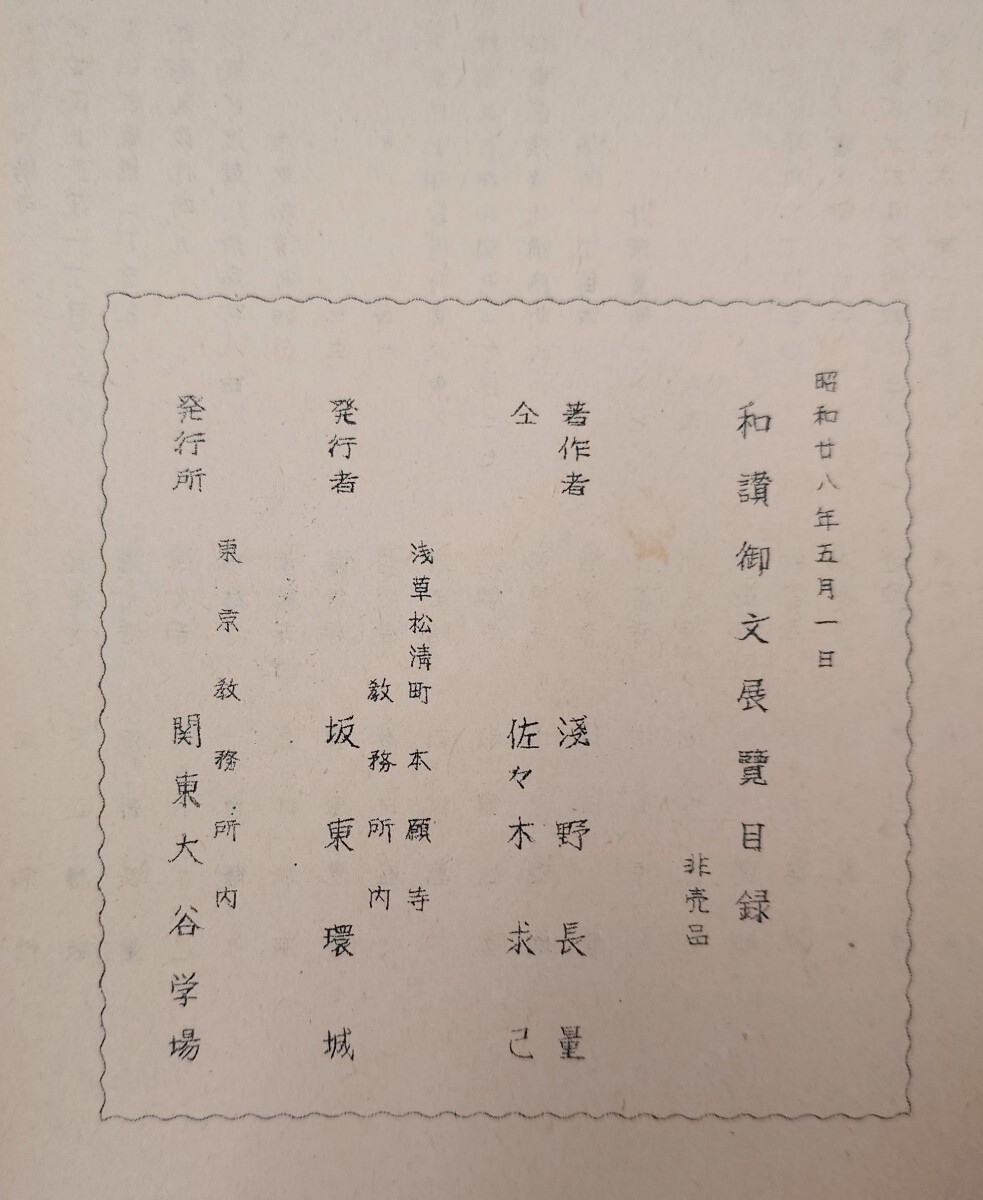 昭和廿八年五月一日
和讃御文展覽目録
非売品
著作者 淺野長量
仝 佐々木求己
浅草松清町 本願寺
教務所内
発行者 坂東環城
東京教務所内
発行所 関東大谷学場